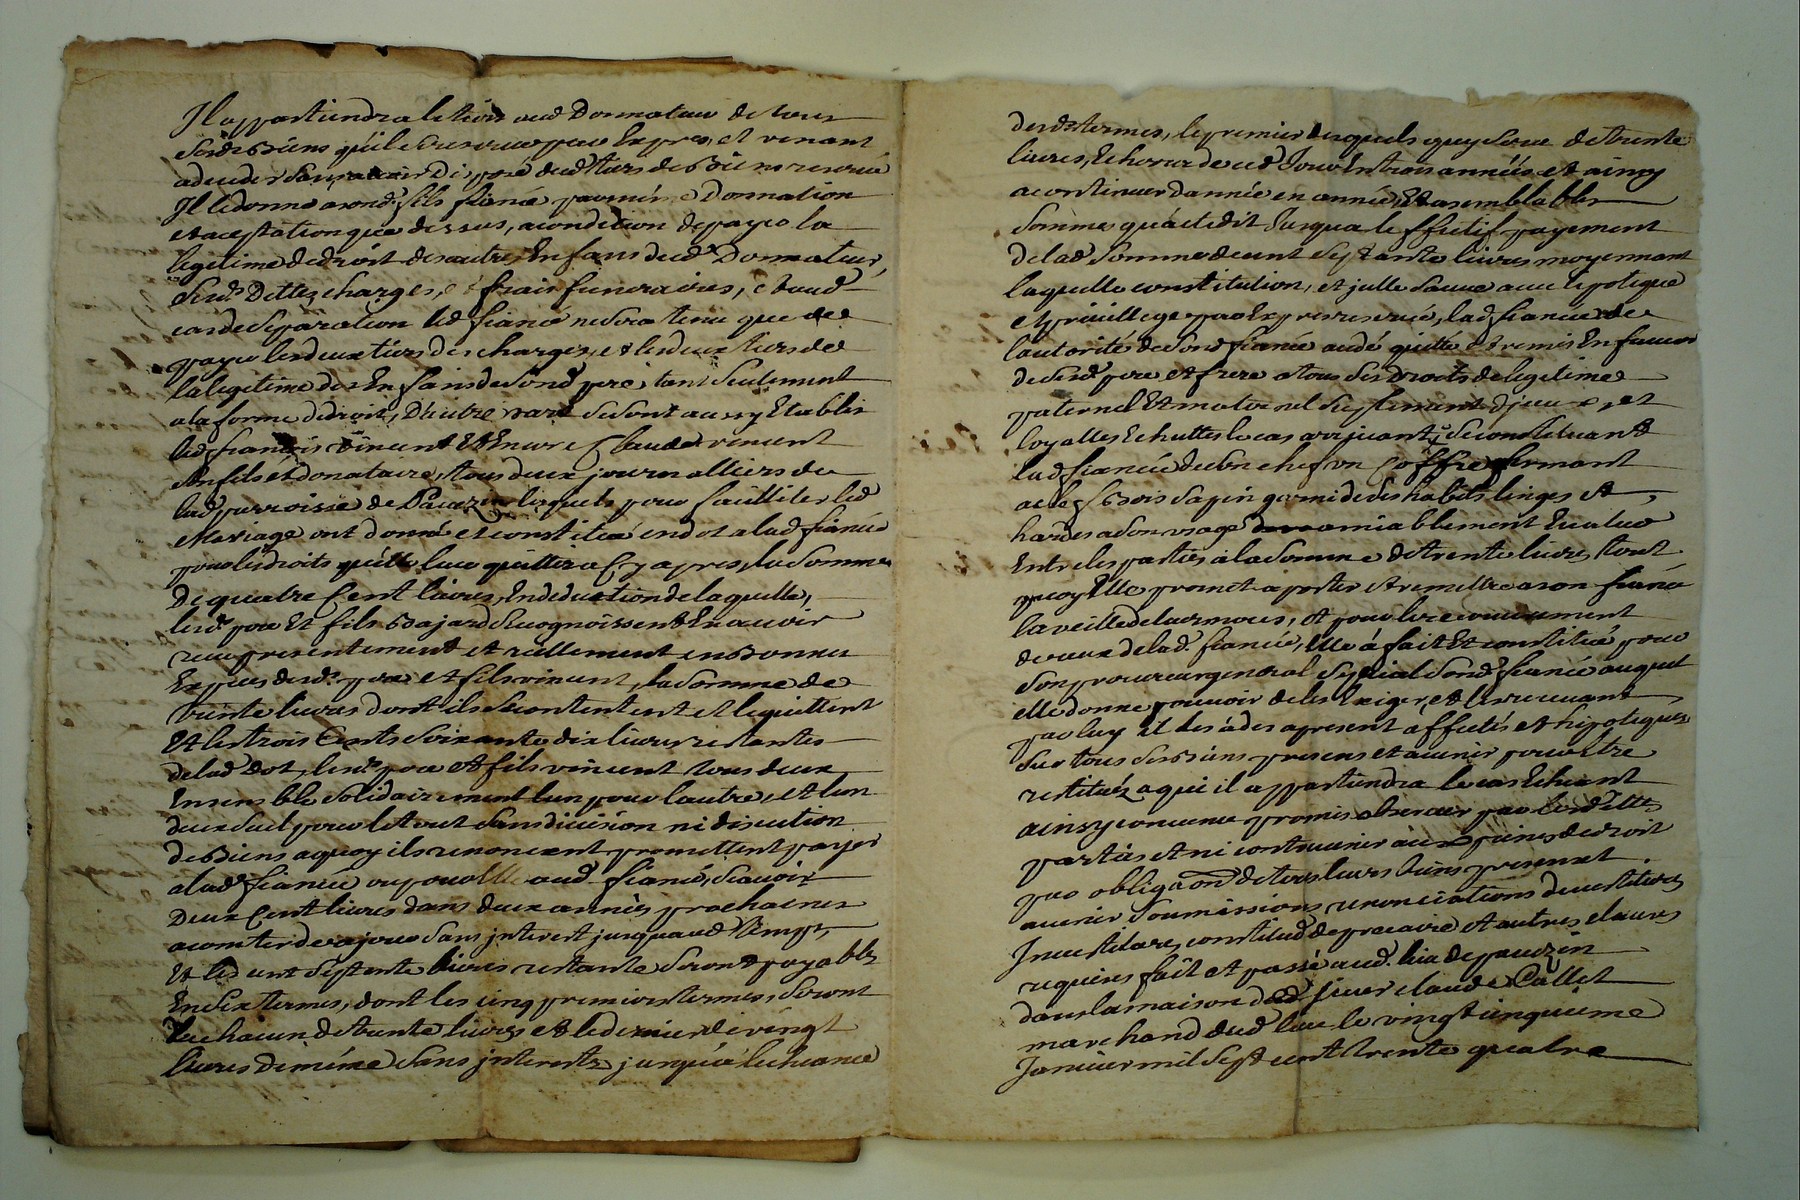 Il appartiendra le tiers aud Donnateur de tous
sesds Biens qu'il se reserve par Expres, et venant
a deceder sans avoir Disposé dud tiers de Biens reservé
Il le donne a sond fils fiancé par mesme Donnation
et aceptation que dessus, a condition de payer la
legitime de droit des autres Enfans dud Donnateur,
sesds Dettes charges, et frais funeraires, et aud
cas de separation led fiancé ne sera tenu que de
payer les deux tiers des charges, et les deux tiers de
la legitime des Enfans de sond pere, tant seulement
a la forme de droit, D'autre part se sont aussy Etablis
led françois vincent Et Encore Claude vincent
son fils et donataire, tous deux journalliers de
lad parroisse de Pauzin lesquels pour faciliter led
Mariage ont donné et constitué en dot a lad fiancée
pour les droits qu'elle leur quittera Cy apres, la somme
De quatre Cent livres, En deduction de laquelle,
lesds pere Et fils Bajard recognoissent En avoir
receu presentement et réellement en Bonnes
Espèces desds pere et fils vincent, la somme de
trente livres dont ils se contentent et le quittent
Et les trois Cents soixante dix livres restantes
de lad Dot, lesds pere et fils vincent tous deux
Ensemble solidairement l'un pour l'autre, et l'un
deux seul pour le tout sans division ni discution
de Biens a quoy ils renoncent promettent payer
a lad fiancée ou pour Elle aud fiancé, sçavoir
Deux Cent livres dans deux années prochaines
a compter de ce jour sans jnterest jusqu'aud temps,
Et led cent septente livres restante seront payables
En six termes, dont les cinq premiers termes, seront
Un chacun de trente livres et le dernier de vingt
livres de même sans jnterests jusqu'a l'echeance
desds termes, le premier desquels quy sera de trente
livres, Echerra de ced Jour En trois années, et ainsy
a continuer d'année en année, Et a semblables
sommes qu'a eté dit Jusqu'a l'effectif payement
de lad somme de cent septante livres moyennant
laquelle constitution, et jcelle sauve avec hipoteque
et privillege par Expres reservé, lad fiancée de
l'autorité de sond fiancé a cedé quitté et remis En faveur
de sesds pere et frere a tous ses droits de legitime
paternel Et maternel suplement d'jceux, et
loyalles Echuttes le cas arrivant, se constituant
lad fiancée de son chef un Coffre fermant
a clef Bois sapin garni de des habits linges et
hardes a son usage amiablement Evalué
Entre les parties a la somme de trente livres, tout
quoy Elle promet aporter et remettre a son fiancé
la veille de leur noces, et pour le recouvrement
de ceux de lad. fiancée, Elle a fait Et constitué pour
son procureur general special sond fiancé auquel
elle donne pouvoir de les Exiger, et les recevant
par luy il les a des a present affectés et hipotequés
sur tous ses Biens presens et avenir pour être
restitués a qui il appartiendra le cas Echeant
ainsy convenu promis observer par lesdittes
parties et ni contrevenir aux peines de droit
par obligaon de tous leurs biens present
avenir soumissions renonciations devestitures
Jnvestitures, constitud de precaire et autres clauses
requises fait et passé aud. lieu de pauzin
dans la maison de sieur claude Callet
marchand dud lieu le vingt cinquieme
Janvier mil sept cent trente quatre